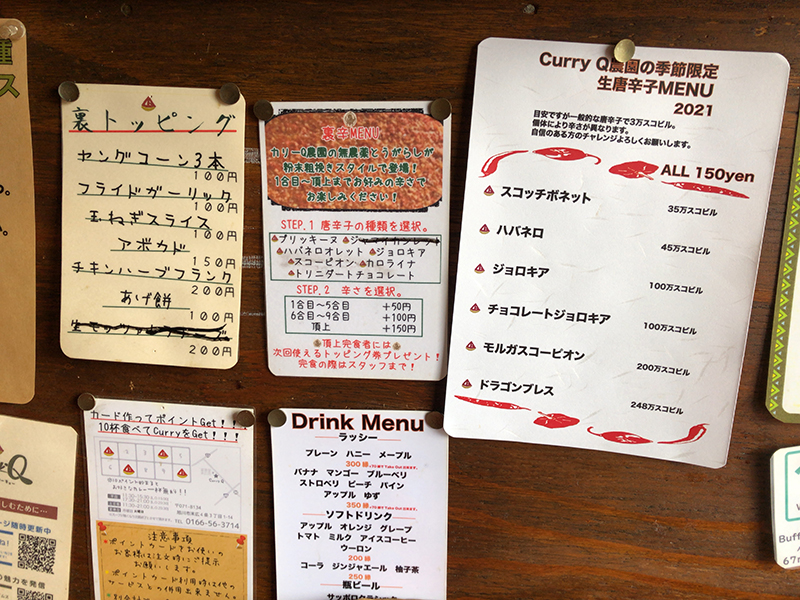 裏トッピング
ヤングコーン3本
100円
フライドガーリック
100円
玉ねぎスライス
100円
アボカド
150円
チキンハーブフランク
200円
あげ餅
100円
200円
裏辛MENU
カリーQ農園の無農薬とうがらしが
粉末粗挽きスタイルで登場！
1合目～頂上までお好みの辛さで
お楽しみください！
STEP.1 唐辛子の種類を選択。
プリッキーヌ
ハバネロオレット ジョロキア
スコーピオン カロライナ
トリニダートチョコレート
STEP.2 辛さを選択。
1合目～5合目 +50円
6合目～9合目 +100円
頂上 +150円
頂上完食者には
次回使えるトッピング券プレゼント！
完食の際はスタッフまで！
Curry Q農園の季節限定
生唐辛子MENU
2021
目安ですが一般的な唐辛子で3万スコビル。
個体により辛さが異なります。
自信のある方のチャレンジよろしくお願いします。
ALL 150yen
スコッチボネット
35万スコビル
ハバネロ
45万スコビル
ジョロキア
100万スコビル
チョコレートジョロキア
100万スコビル
モルガスコーピオン
200万スコビル
ドラゴンブレス
248万スコビル
カード作ってポイントGet！！
10杯食べてCurryをGet！！！
TEL 0166-56-3714
注意事項
ポイントカードをお使いの
お客様は注文時にご提示
お願いします。
ポイントカード利用時は他の
サービスとの併用出来ません。
Drink Menu
ラッシー
プレーン ハニー メープル
300縁
バナナ マンゴー ブルーベリ
ストロベリ ピーチ パイン
アップル ゆず
350縁
ソフトドリンク
アップル オレンジ グレープ
トマト ミルク アイスコーヒー
ウーロン
200縁
コーラ ジンジャエール 柚子茶
250縁
瓶ビール
サッポロクラシック
ス
Q
しむために…
ージ随時更新中
の魅力を発信
Buff
67m